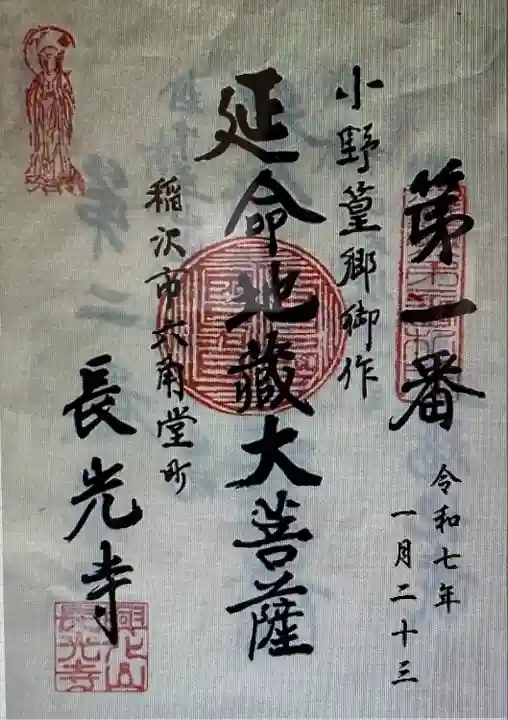 第一番
令和七年
一月二十三
小野篁郷御作
延命地蔵大菩薩
稲沢市六角堂町
長光寺
興化山
長光寺